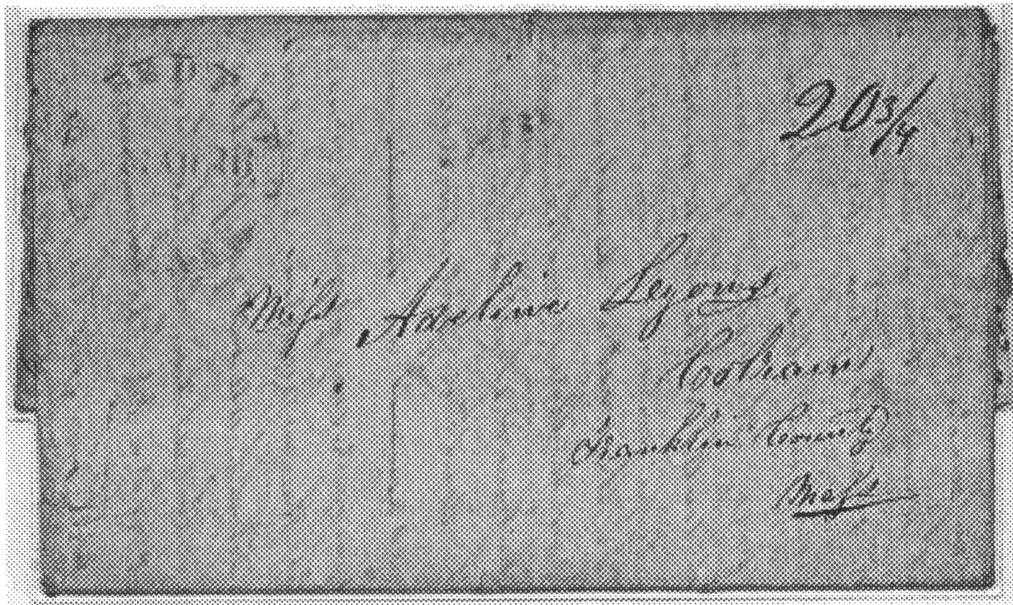 20 3/4
Miss Adeline Lyons
Colrain
Franklin County
Mass